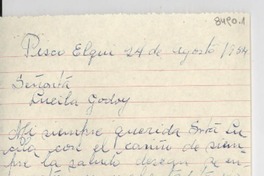 8490.1
Pisco Elqui 24 de agosto / 954
Señorita
Lucila Godoy
Mi siempre querida Srta Lu
cila con el cariño de siem
pre la saludo